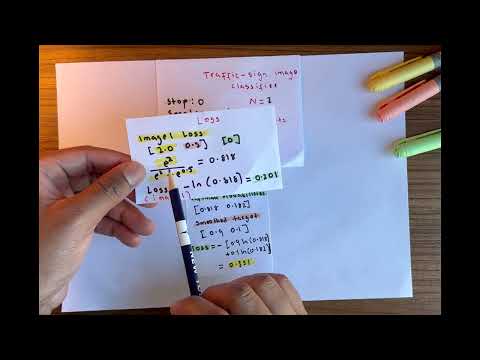 Traffic-sign image
classifier
Stop: 0
N = 2
Loss
Image 1 Loss
[2.0 0.5] [0]
e² = 0.818
Loss = -ln (0.818) = 0.201
[0.818 0.182]
Smoothed target
[0.9 0.1]
Loss = - [0.9 ln(0.818)
+0.1 ln(0.182)]
= 0.351